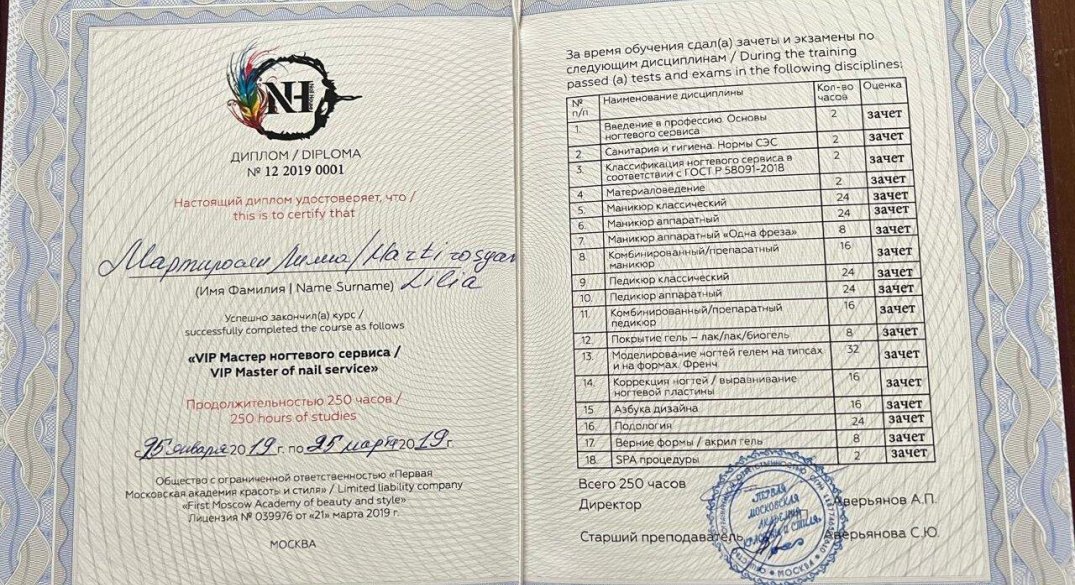 NH
Nail House
ДИПЛОМ / DIPLOMA
№ 12 2019 0001
Настоящий диплом удостоверяет, что /
this is to certify that
Мартиросян Лилия / Martirosyan
(Имя Фамилия | Name Surname) Lilia
Успешно закончил(а) курс /
successfully completed the course as follows
«VIP Мастер ногтевого сервиса /
VIP Master of nail service»
Продолжительностью 250 часов /
250 hours of studies
с 25 января 2019 г. по 25 марта 2019 г.
Общество с ограниченной ответственностью «Первая
Московская академия красоты и стиля» / Limited liability company
«First Moscow Academy of beauty and style»
Лицензия № 039976 от «21» марта 2019 г.
МОСКВА
За время обучения сдал(а) зачеты и экзамены по
следующим дисциплинам / During the training
passed (a) tests and exams in the following disciplines:
№ п/п Наименование дисциплины Кол-во часов Оценка
1. Введение в профессию. Основы ногтевого сервиса 2 зачет
2. Санитария и гигиена. Нормы СЭС 2 зачет
3. Классификация ногтевого сервиса в соответствии с ГОСТ Р 58091-2018 2 зачет
4 Материаловедение 2 зачет
5. Маникюр классический 24 зачет
6. Маникюр аппаратный 24 зачет
7. Маникюр аппаратный «Одна фреза» 8 зачет
8. Комбинированный/препаратный маникюр 16 зачет
9. Педикюр классический 24 зачет
10. Педикюр аппаратный 24 зачет
11. Комбинированный/препаратный педикюр 16 зачет
12. Покрытие гель – лак/лак/биогель 8 зачет
13. Моделирование ногтей гелем на типсах и на формах. Френч 32 зачет
14. Коррекция ногтей / выравнивание ногтевой пластины 16 зачет
15 Азбука дизайна 16 зачет
16. Подология 24 зачет
17. Верние формы / акрил гель 8 зачет
18. SPA процедуры 2 зачет
Всего 250 часов
Директор Аверьянов А.П.
Старший преподаватель Аверьянова С.Ю.
ПЕРВАЯ
МОСКОВСКАЯ
АКАДЕМИЯ
КРАСОТЫ И СТИЛЯ
МОСКВА